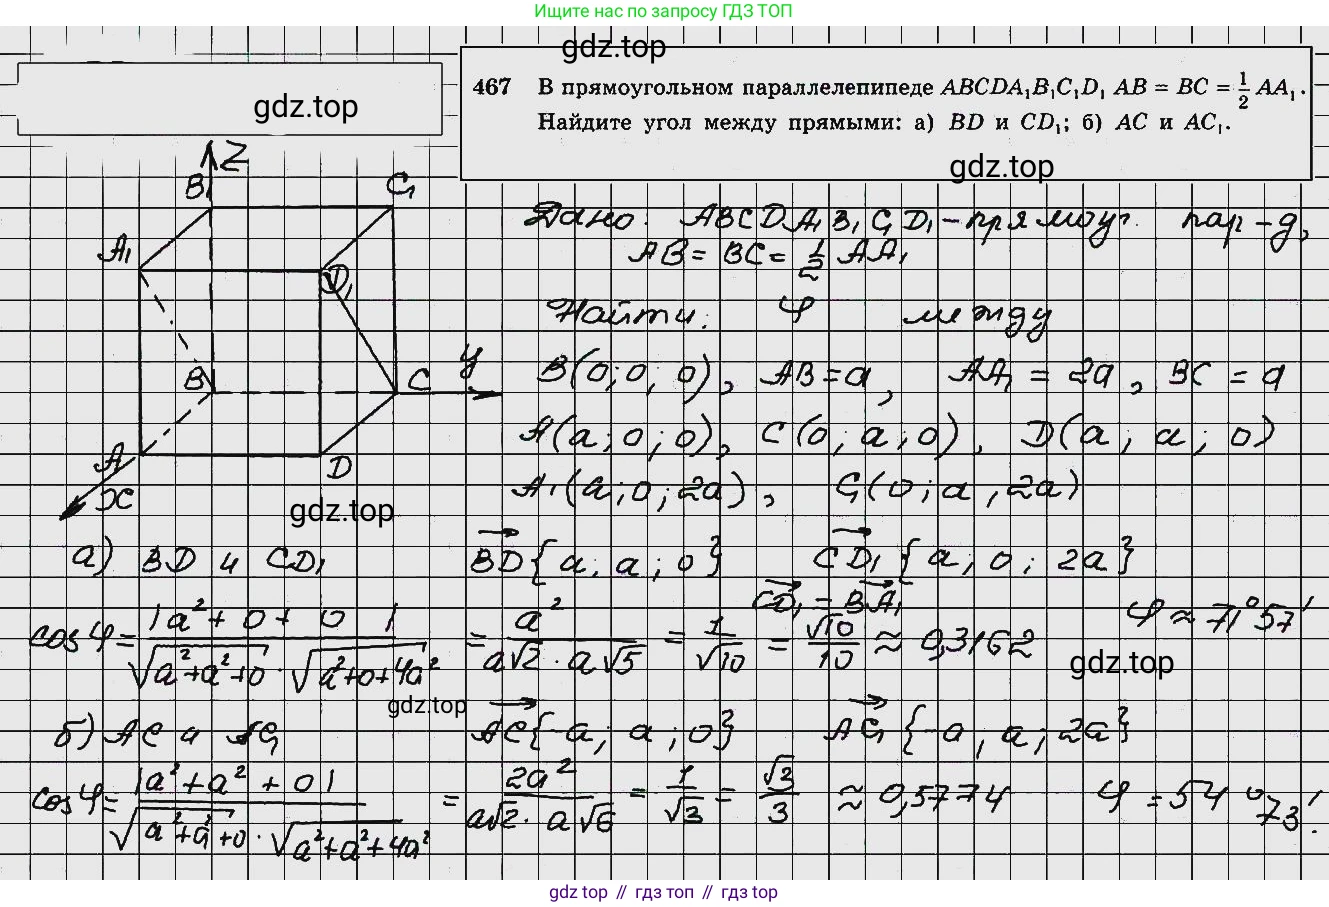 Ищите нас по запросу ГДЗ ТОП
gdz.top
467 В прямоугольном параллелепипеде ABCDA₁B₁C₁D₁ AB = BC = 1/2 AA₁.
Найдите угол между прямыми: а) BD и CD₁; б) AC и AC₁.
gdz.top
gdz.top
Z
B₁
C₁
A₁
D₁
B
C
y
A
D
x
gdz.top
Дано: ABCDA₁B₁C₁D₁ - прямоуг. пар-д,
AB = BC = 1/2 AA₁
Найти: φ между
B(0; 0; 0), AB = a, AA₁ = 2a, BC = a
A(a; 0; 0), C(0; a; 0), D(a; a; 0)
A₁(a; 0; 2a), C₁(0; a; 2a)
а) BD и CD₁ BD{a; a; 0} CD₁{a; 0; 2a}
CD₁ = BA₁
cosφ = |a² + 0 + 0| / √(a²+a²+0) · √(a²+0+4a²) = a² / a√2 · a√5 = 1/√10 = √10/10 ≈ 0,3162 φ ≈ 71°57′
gdz.top
gdz.top
б) AC и AC₁ AC{-a; a; 0} AC₁{-a; a; 2a}
cosφ = |a² + a² + 0| / √(a²+a²+0) · √(a²+a²+4a²) = 2a² / a√2 · a√6 = 1/√3 = √3/3 ≈ 0,5774 φ = 54°73′.
gdz top // гдз топ // gdz top